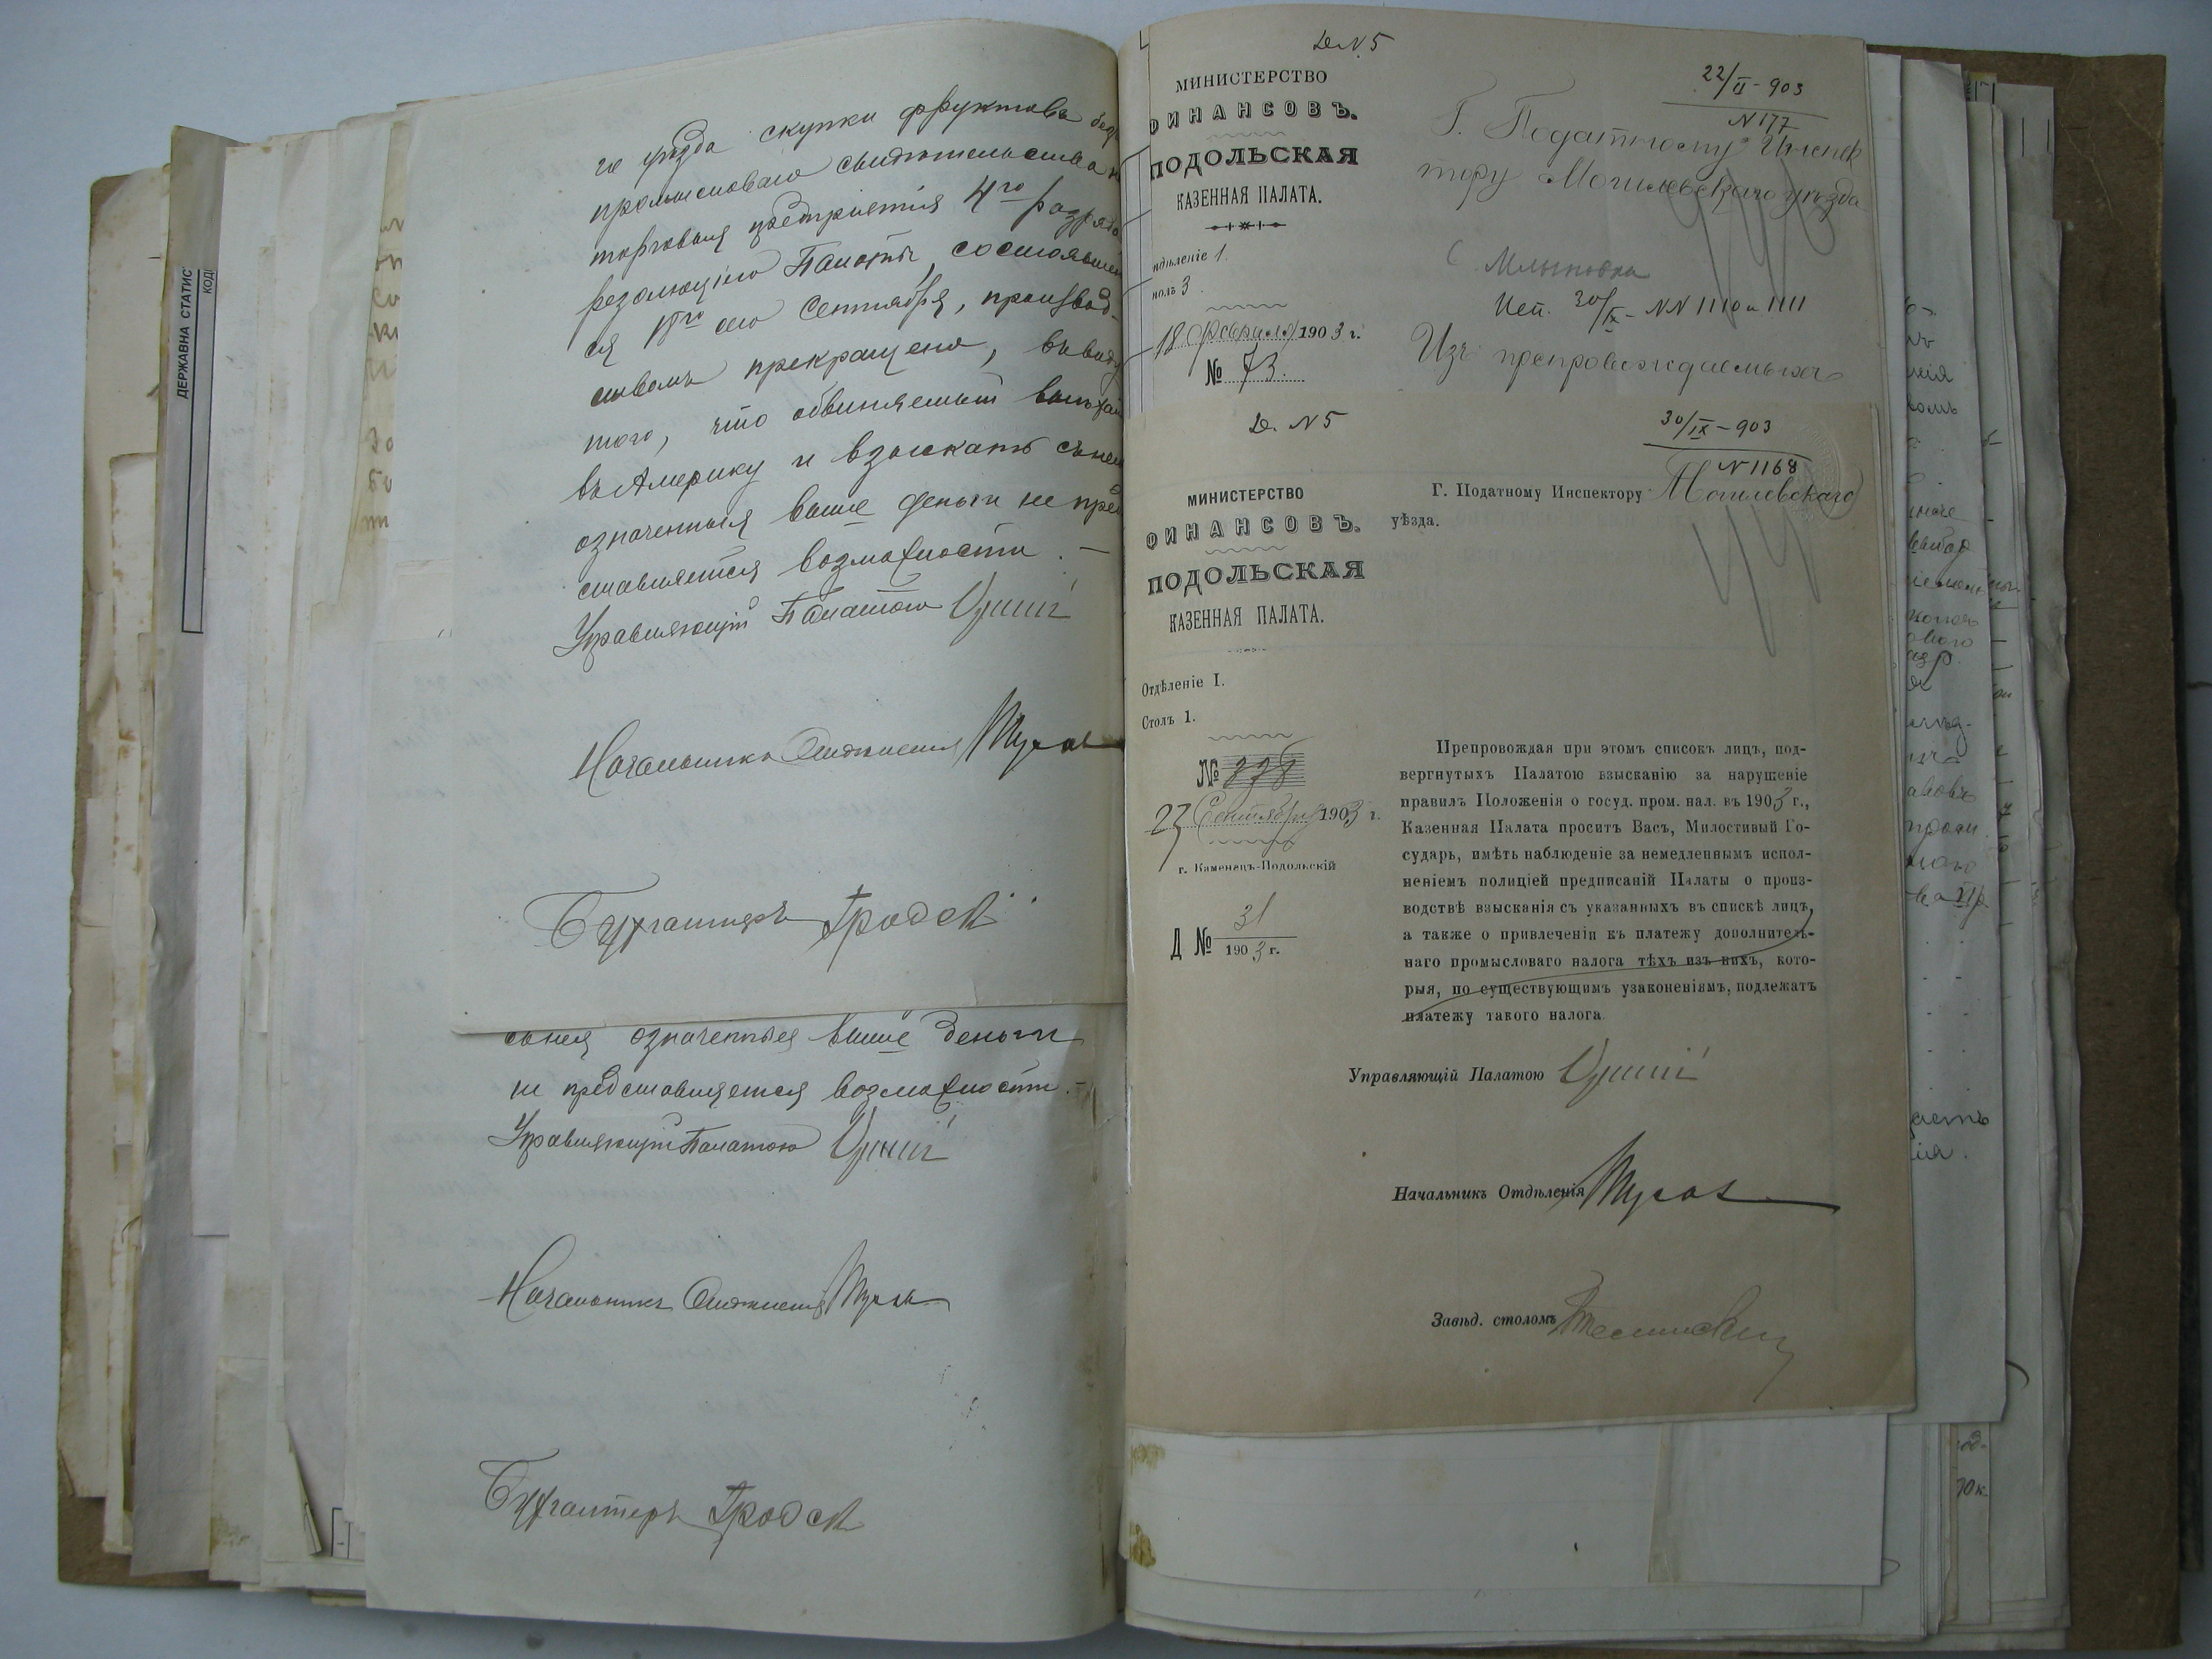 ДЕРЖАВНА СТАТИС
КОД
го уѣзда скупки фруктовъ безъ
промысловаго свидѣтельства на
торговыя предпріятія 4го разряда
резолюціею Палаты, состоявшей
ся сего Сентября, производ-
ствомъ прекращено, въ виду
того, что обвиняемый выѣхалъ
въ Америку и взыскать съ нея
означенныя выше деньги не пред
ставляется возможности. —
Управляющій Палатою
Начальникъ Отдѣленія
Бухгалтеръ
съ нея означенныя выше деньги
не представляется возможности. —
Управляющій Палатою
Начальникъ Отдѣленія
Бухгалтеръ
Д. N 5
МИНИСТЕРСТВО
ФИНАНСОВЪ.
ПОДОЛЬСКАЯ
КАЗЕННАЯ ПАЛАТА.
тдѣленіе 1.
толъ 3.
18 февраля 1903 г.
№ 73.
22/II - 903
N 177
Г. Податному Инспек
тору Могилевскаго уѣзда
Исп. 30/IX - NN 1110 и 1111
Изъ препровождаемыхъ
Д. N 5
МИНИСТЕРСТВО
ФИНАНСОВЪ.
ПОДОЛЬСКАЯ
КАЗЕННАЯ ПАЛАТА.
Отдѣленіе I.
Столъ 1.
№ 378
23 Сентября 1903 г.
г. Каменецъ-Подольскій
Д № 31
1903 г.
30/IX - 903
N 1168
Г. Податному Инспектору Могилевскаго
уѣзда.
Препровождая при этомъ списокъ лицъ, под-
вергнутыхъ Палатою взысканію за нарушеніе
правилъ Положенія о госуд. пром. нал. въ 1903 г.,
Казенная Палата проситъ Васъ, Милостивый Го-
сударь, имѣть наблюденіе за немедленнымъ испол-
неніемъ полиціей предписаній Палаты о произ-
водствѣ взысканія съ указанныхъ въ спискѣ лицъ,
а также о привлеченіи къ платежу дополнитель-
наго промысловаго налога тѣхъ изъ нихъ, кото-
рыя, по существующимъ узаконеніямъ, подлежатъ
платежу такого налога.
Управляющій Палатою
Начальникъ Отдѣленія
Завѣд. столомъ